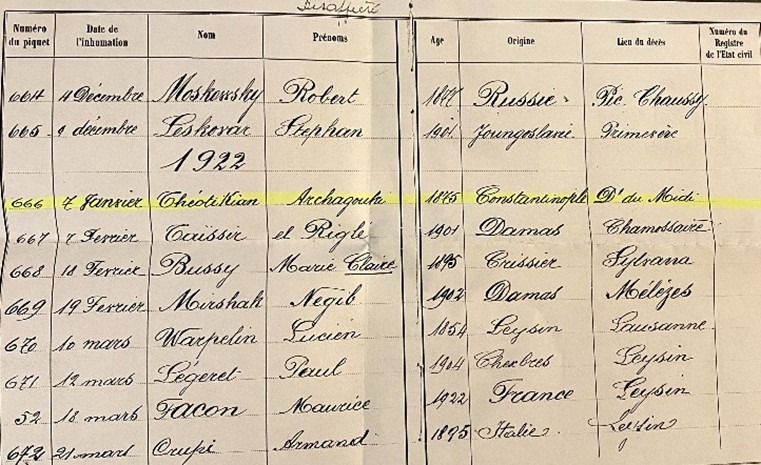 Numéro du piquet Date de l'inhumation Nom Prénoms Age Origine Lieu du décès Numéro du Registre de l'Etat civil
664 4 Décembre Moskowsky Robert Russie Pic. Chaussy
665 9 décembre Leskovar Stephan 1901 Joungoslavie Primevère
1922
666 7 Janvier Théotikian Archagouhi 1875 Constantinople Dt du Midi
667 7 Fevrier Taissir el Riglé 1901 Damas Chamossaire
668 18 Fevrier Bussy Marie Claire 1895 Crissier Sylvana
669 19 Fevrier Mirshak Negib 1902 Damas Mélèzes
670 10 mars Warpelin Lucien 1854 Leysin Lausanne
671 12 mars Légeret Paul 1904 Chexbres Leysin
52 18 mars Facon Maurice 1922 France Leysin
672 21 mars Crupi Armand 1895 Italie Leysin